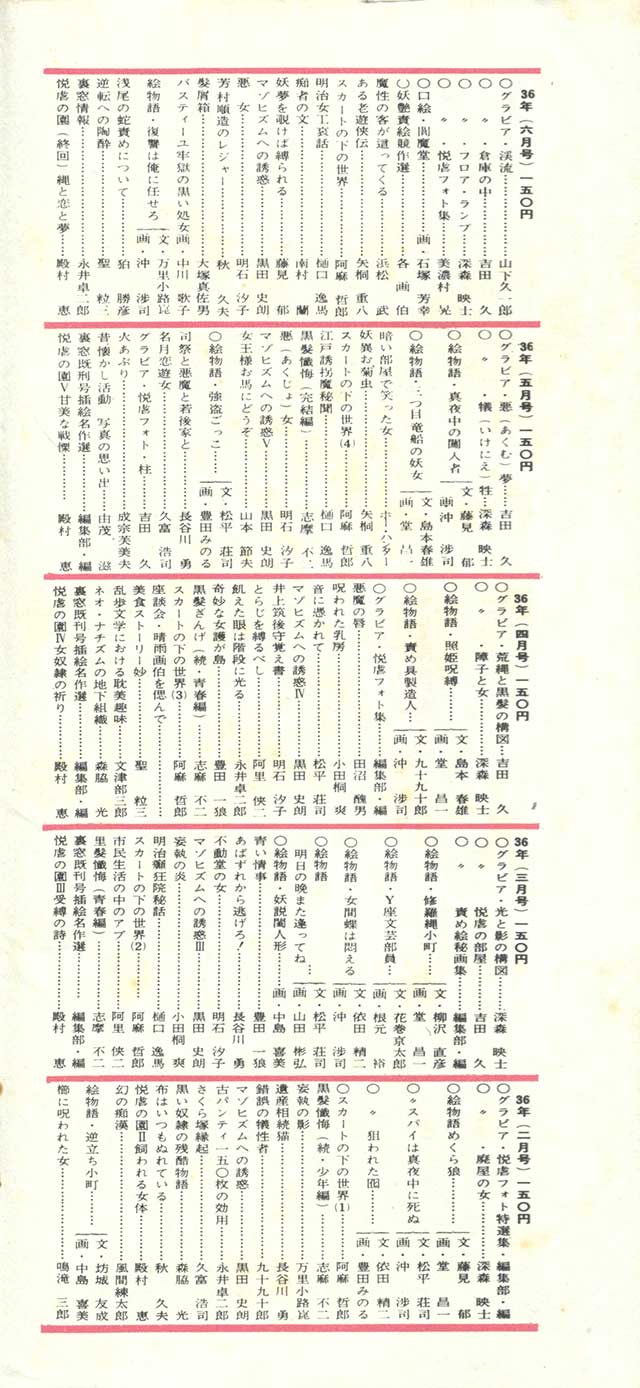 36年（六月号）一五〇円
〇グラビア・渓流………山下久一郎
〇　〃　・倉庫の中………吉田　久
〇　〃　・フロア・ランプ………深森映士
〇　〃　・悦虐フォト集………美濃村　晃
〇口絵・閻魔堂………画・石塚芳幸
〇妖艶責絵競作選………各　画　伯
魔性の客が這ってくる………浜松　武
ある老遊侠伝………矢桐重八
スカートの下の世界………阿麻哲郎
明治女工哀話………樋口逸馬
痴者の文………南村　蘭
妖夢を覗けば縛られる………藤見　郁
マゾヒズムへの誘惑………黒田史朗
悪　女………明石汐子
芳村順造のレジャー………秋　久夫
髪屑箱………大塚真佐男
バスティーユ牢獄の黒い処女画・中川歌子
絵物語・復讐は俺に任せろ
文・万里小路崑
画・沖　渉司
浅尾の蛇責めについて………狛　勝彦
逆転への陶酔………聖　粒三
裏窓情報………永井卓二郎
悦虐の園（終回）縄と恋と夢………殿村　恵
36年（五月号）一五〇円
〇グラビア・悪（あくむ）夢………吉田　久
〇　〃　・犠（いけにえ）牲………深森映士
〇絵物語・真夜中の闖入者
文・藤見　郁
画・沖　渉司
〇絵物語・二つ目竜船の妖女
文・島本春雄
画・堂　昌一
暗い部屋で笑った女………ホー・ハンター
妖異お菊虫………矢桐重八
スカートの下の世界(4)………阿麻哲郎
江戸誘拐魔秘聞………樋口逸馬
黒髪懺悔（完結編）………志摩不二
悪（あくじょ）女………明石汐子
マゾヒズムへの誘惑Ⅴ………黒田史朗
女王様お馬にどうぞ………山本節夫
〇絵物語・強盗ごっこ
文・松平荘司
画・豊田みのる
司祭と悪魔と若後家と………長谷川　勇
名月恋遊女………久富浩司
グラビア・悦虐フォト・柱………吉田　久
火あぶり………成宗芙美夫
昔懐かし活動　写真の思い出………由茂　滋
裏窓既刊号挿絵名作選………編集部・編
悦虐の園Ⅴ甘美な戦慄………殿村　恵
36年（四月号）一五〇円
〇グラビア・荒縄と黒髪の構図………吉田　久
〇　〃　・障子と女………深森映士
〇絵物語・照姫呪縛
文・島本春雄
画・堂　昌一
〇絵物語・責め具製造人
文・九十九十郎
画・沖　渉司
〇グラビア・悦虐フォト集………編集部・編
悪魔の唇………田沼醜男
呪われた乳房………小田桐　爽
音に憑かれて………松平荘司
マゾヒズムへの誘惑Ⅳ………黒田史朗
井上筑後守覚え書………明石汐子
とらじを縛るべし………阿里侠二
飢えた眼は階段に光る………永井卓二郎
奇妙な女護が島………豊田一狼
黒髪ざんげ（続・青春編）………志麻不二
スカートの下の世界(3)………阿麻哲郎
座談会・晴雨画伯を偲んで………
美食ストーリー妙………聖　粒三
乱歩文学における耽美趣味………文津部三郎
ネオ・ナチズムの地下組織………森脇　光
裏窓既刊号挿絵名作選………編集部・編
悦虐の園Ⅳ女奴隷の祈り………殿村　恵
36年（三月号）一五〇円
〇グラビア・光と影の構図………深森映士
〇　〃　悦虐の部屋………吉田　久
〇　〃　責め絵秘画集………編集部・編
〇絵物語・修羅縄小町
文・柳沢直彦
画・堂　昌一
〇絵物語・Ｙ座文芸部員
文・花巻京太郎
画・根元　裕
〇絵物語・女間蝶は悶える
文・依田精二
画・沖　渉司
〇絵物語
明日の晩また逢ってね
文・松平荘司
画・山田彬弘
〇絵物語・妖説閨人形………画・中島喜美
青い情事………豊田一狼
あばずれから逃げろ！………長谷川　勇
不動堂の女………明石汐子
マゾヒズムへの誘惑Ⅲ………黒田史朗
妄執の炎………小田桐　爽
明治癲狂院秘話………樋口逸馬
スカートの下の世界(2)………阿麻哲郎
市民生活の中のアブ………阿里侠二
黒髪懺悔（青春編）………志摩不二
裏窓既刊号挿絵名作選………編集部・編
悦虐の園Ⅲ受縛の詩………殿村　恵
36年（二月号）一五〇円
〇グラビア・悦虐フォト特選集・編集部・編
〇　〃　・廃屋の女………深森映士
〇絵物語めくら狼
文・藤見　郁
画・堂　昌一
〇　〃スパイは真夜中に死ぬ
文・松平荘司
画・沖　渉司
〇　〃　狙われた囮
文・依田精二
画・豊田みのる
〇スカートの下の世界(1)………阿麻哲郎
黒髪懺悔（続・少年編）………志麻不二
妄執の影………万里小路崑
遺産相続猫………長谷川　勇
錯誤の犠牲者………九十九十郎
マゾヒズムへの誘惑………黒田史朗
古パンティ一五〇枚の効用………永井卓二郎
さくら塚縁起………久富浩司
黒い奴隷の残酷物語………森脇　光
布はいつもぬれている………秋　久夫
悦虐の園Ⅱ飼われる女体………殿村　恵
幻の痴漢………風間棟太郎
絵物語・逆立ち小町
文・坊城友成
画・中島喜美
櫛に呪われた女………鳴滝三郎